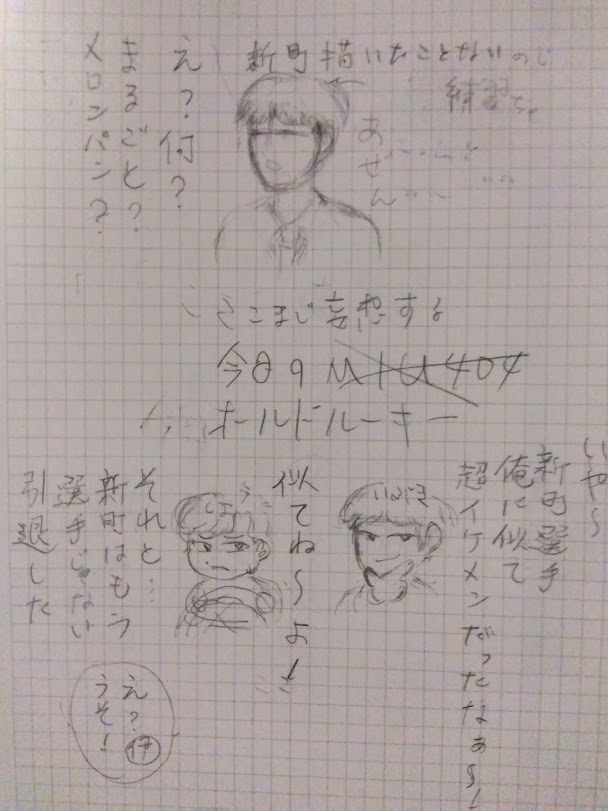 新町描いたことないので
練習
え?何?
まるごと?
メロンパン?
そこまで妄想する
今日のMIU404
オールドルーキー
いや〜
新町選手
俺に似て
超イケメンだったなぁ〜!
似てね〜よ!
それと…
新町はもう
選手じゃない
引退した
え?
うそ!